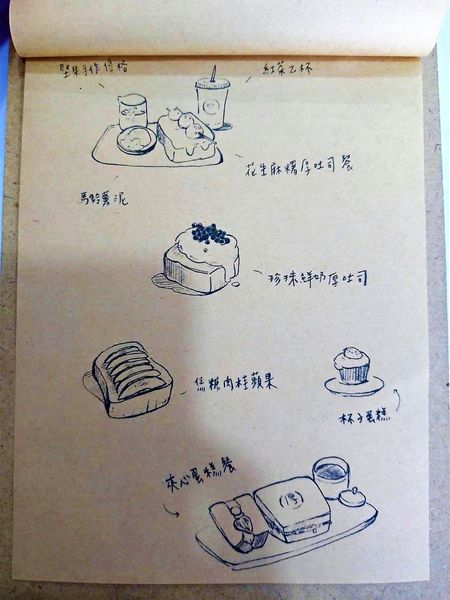 堅果手作優格
紅茶乙杯
花生麻糬厚吐司餐
馬鈴薯泥
珍珠鮮奶厚吐司
焦糖肉桂蘋果
杯子蛋糕
夾心蛋糕餐